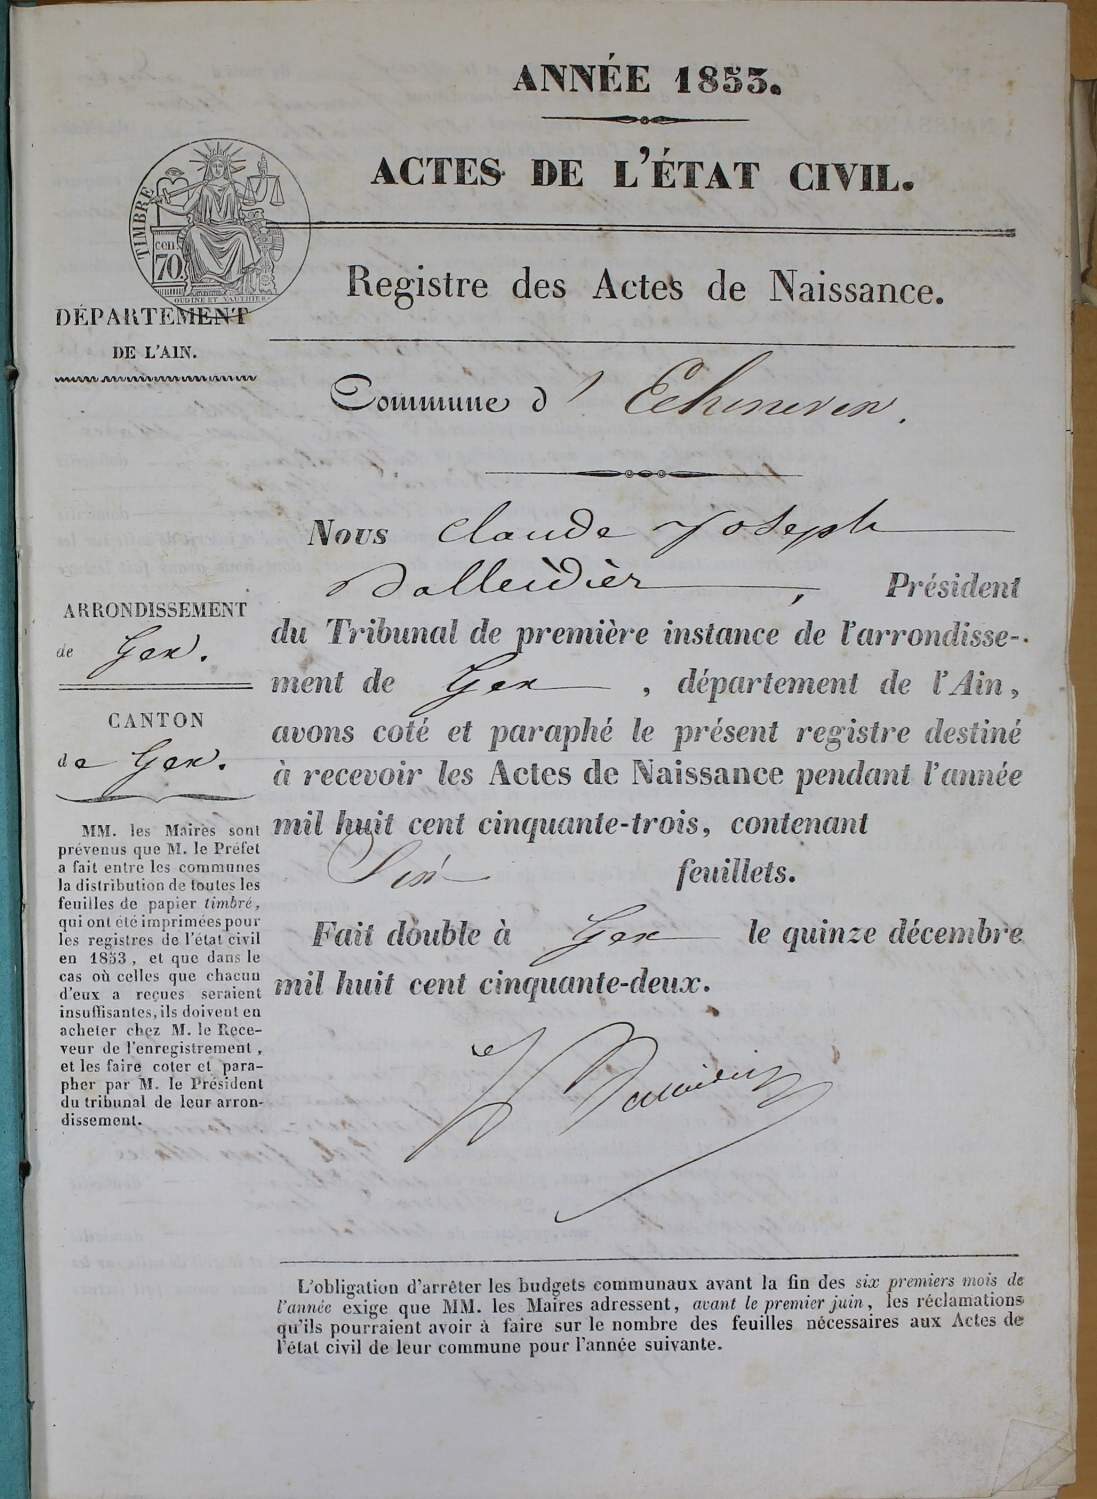 ANNÉE 1853.
ACTES DE L'ÉTAT CIVIL.
TIMBRE
cen.
70
OUDINE ET VAUTHIER
Registre des Actes de Naissance.
DÉPARTEMENT
DE L'AIN.
Commune d' Echenevex.
Nous Claude Joseph
Balleidier, Président
du Tribunal de première instance de l'arrondisse-
ment de Gex, département de l'Ain,
avons coté et paraphé le présent registre destiné
à recevoir les Actes de Naissance pendant l'année
mil huit cent cinquante-trois, contenant
Six feuillets.
Fait double à Gex le quinze décembre
mil huit cent cinquante-deux.
ARRONDISSEMENT
de Gex.
CANTON
de Gex.
MM. les Maires sont
prévenus que M. le Préfet
a fait entre les communes
la distribution de toutes les
feuilles de papier timbré,
qui ont été imprimées pour
les registres de l'état civil
en 1853, et que dans le
cas où celles que chacun
d'eux a reçues seraient
insuffisantes, ils doivent en
acheter chez M. le Rece-
veur de l'enregistrement,
et les faire coter et para-
pher par M. le Président
du tribunal de leur arron-
dissement.
L'obligation d'arrêter les budgets communaux avant la fin des six premiers mois de
l'année exige que MM. les Maires adressent, avant le premier juin, les réclamations
qu'ils pourraient avoir à faire sur le nombre des feuilles nécessaires aux Actes de
l'état civil de leur commune pour l'année suivante.